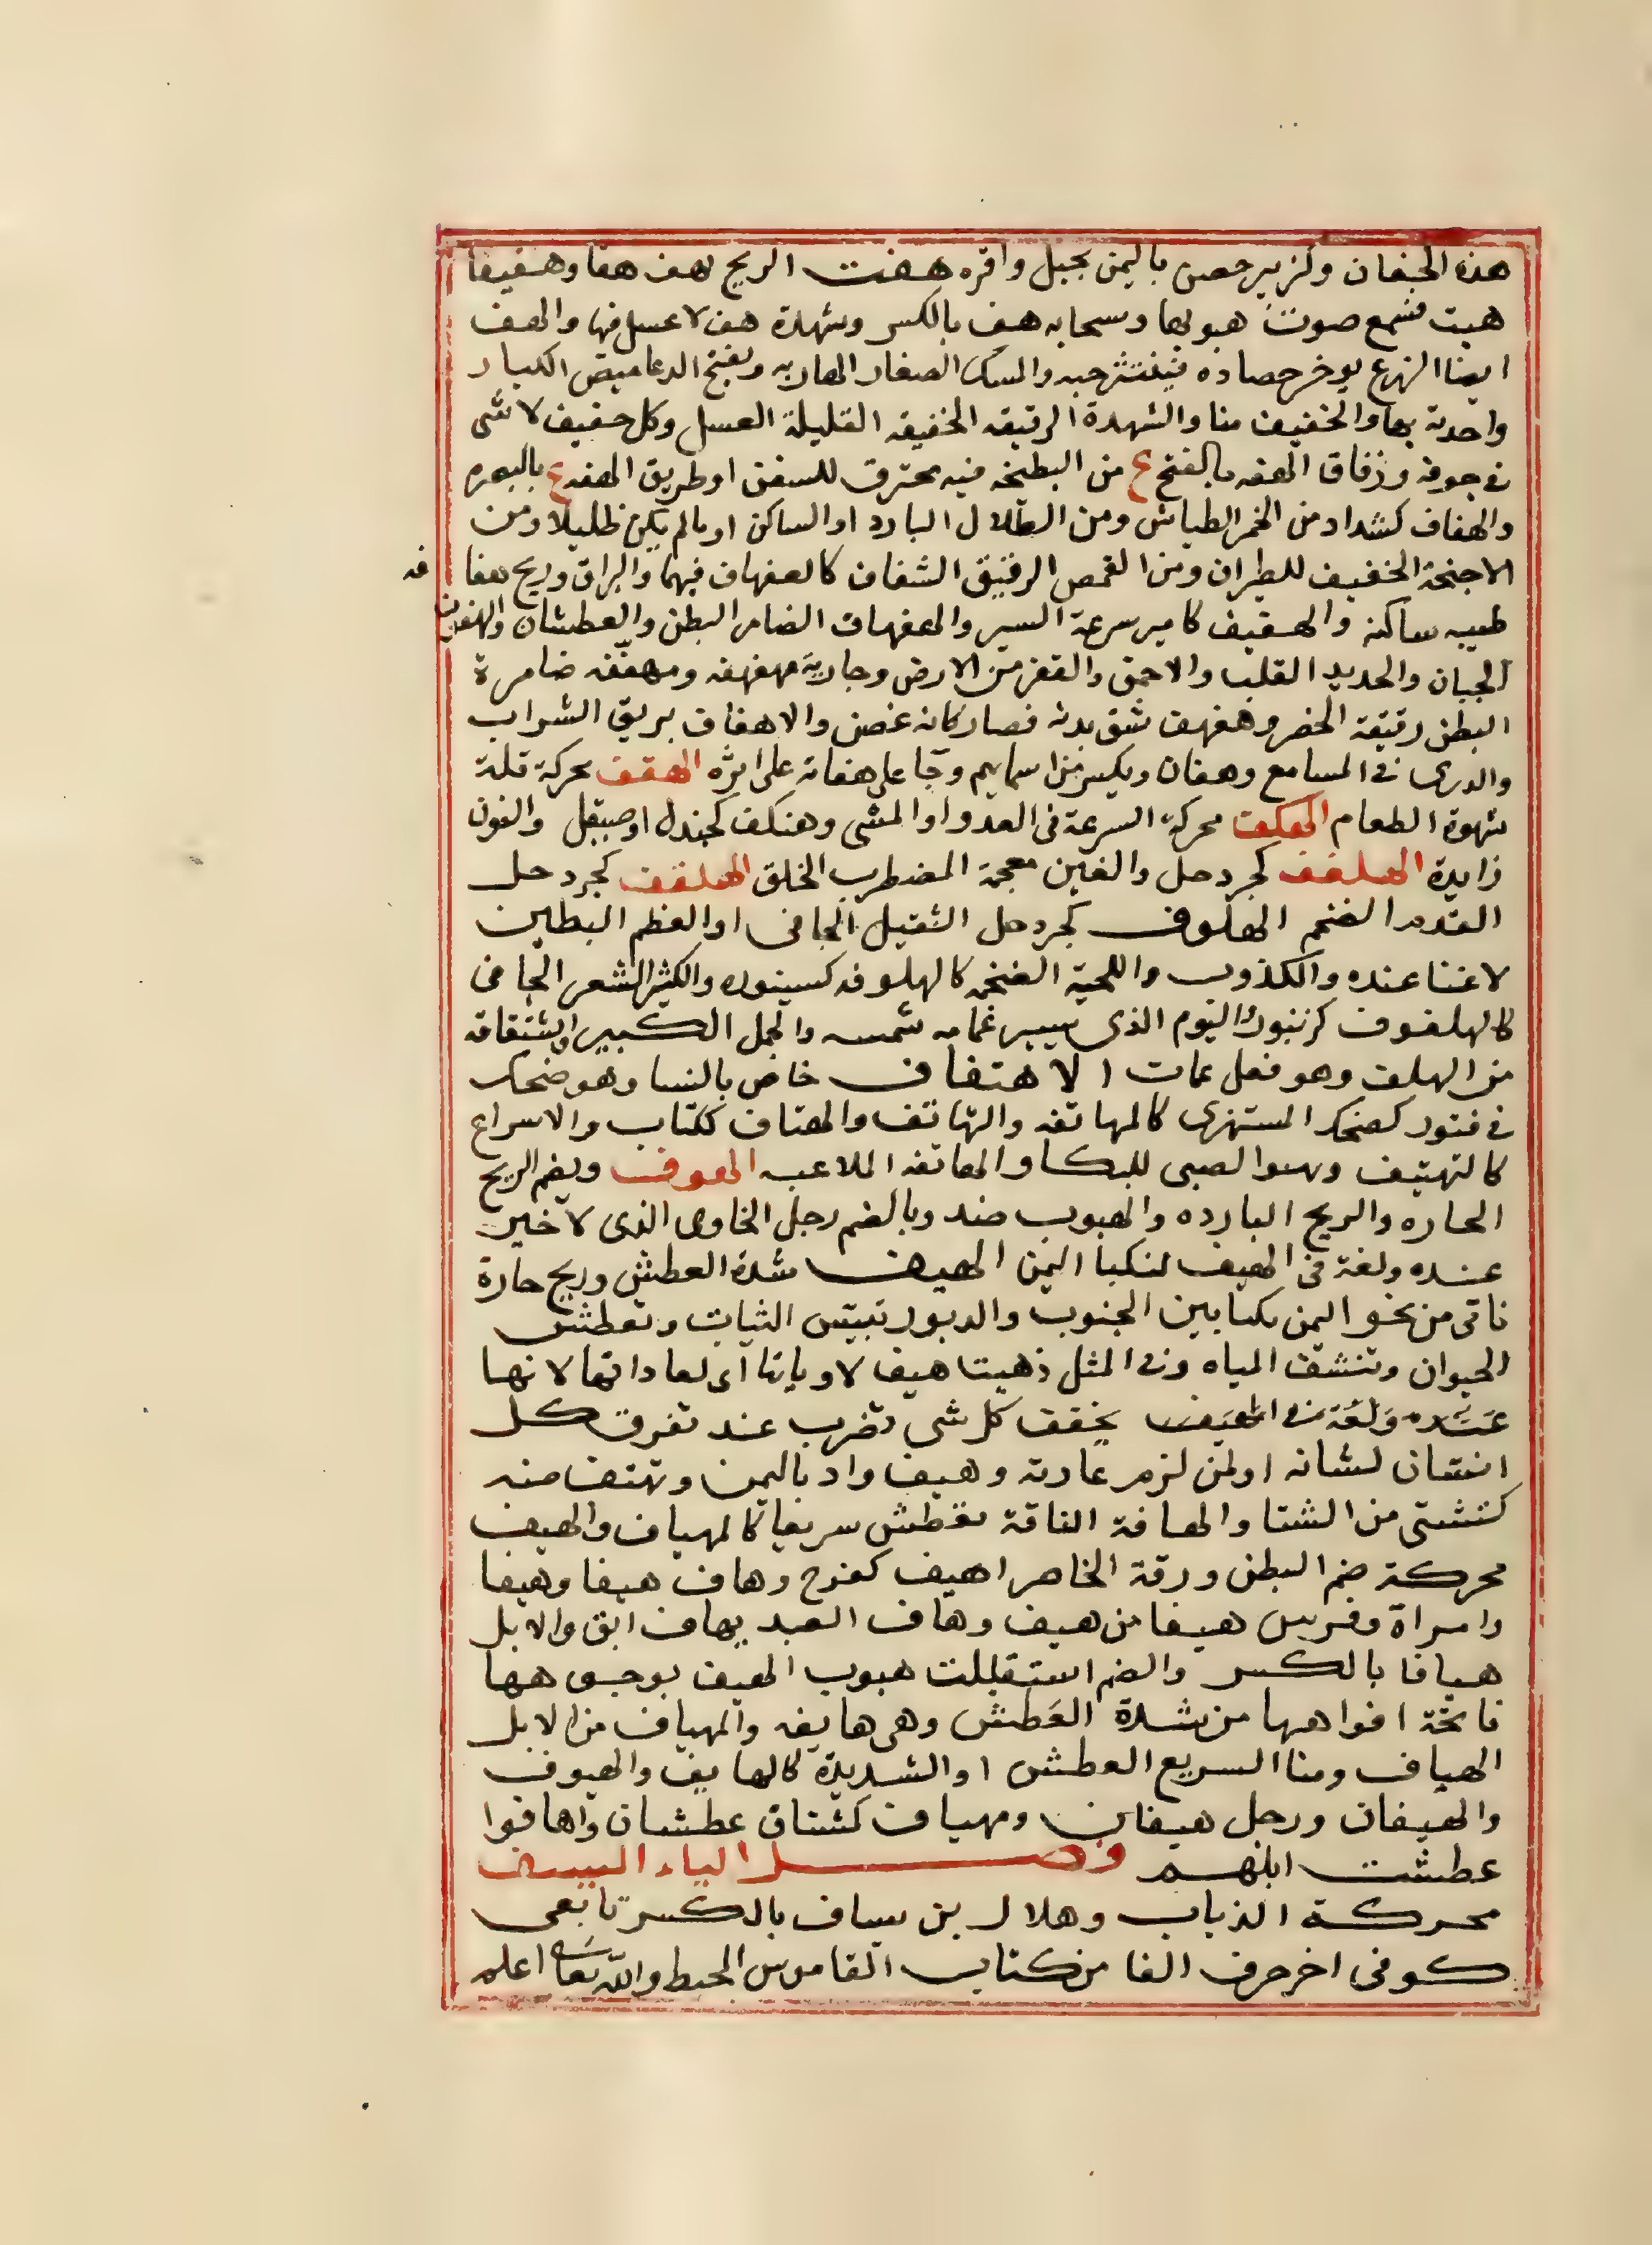 هذه الجفان وكزبير حصن باليمن بجبل واقره هفت الريح تهف هفا وهفيفا
هبت فسمع صوت هبوبها وسحابه هف بالكسر وشهدة هف لا عسل فيها والهف
ايضا الزرع يوخر حصاده فينتثر حبه والسمك الصغار الهاربه ويفتح الدعاميص الكبار
واحدته بها والخفيف منا والشهدة الرقيقه الخفيفه القليلة العسل وكل خفيف لا شى
فى جوفه وزقاق الهفه بالفتح ع من البطيحه فيه مخترق للسفن او طريق الهفه ع بالبصره
والهفاف كشداد من الحمر الطياش ومن الظلال البارد او الساكن او مالم يكن ظليلا ومن
الاجنحة الخفيف للطيران ومن القمص الرقيق الشفاف كالهفهاف فيهما والبراق وريح هفا فه
طيبه ساكنه والهفيف كامير سرعة السير والهفهاف الضامر البطن والعطشان واليهفوف
الجبان والحديد القلب والاحمق والقفر من الارض وجاريه مهفهفه ومهففه ضامرة
البطن رقيقة الخصر وهفهف مشق بدنه فصار كانه غصن والاهفاف بريق السراب
والدوى فى المسامع وهفان ويكسر من اسمايهم وجا على هفانه على اثره الهقف محركة قلة
شهوة الطعام الهكف محركة السرعة فى العدو او المشى وهنكف كجندل او صيقل والنون
زايدة الهلغف كجردحل والغين معجمة المضطرب الخلق الهلقف كجردحل
الفدم الضخم الهلوف كجردحل الثقيل الجافى او العظيم البطين
لا غنا عنده والكذوب واللحية الضخمه كالهلوفه كسنوره والكثير الشعر الجافى
كالهلفوف كزنبور واليوم الذى يستر غمامه شمسه والجمل الكبير واشتقاقه
من الهلف وهو فعل ممات الاهتفاف خاص بالنسا وهو ضحك
فى فتور كضحك المستهزى كالمهانفه والتهانف والهناف ككتاب والاسراع
كالتهنيف وتهيوا الصبى للبكا والمهانفه الملاعبه الهوف ويضم الريح
الحاره والريح البارده والهبوب ضد وبالضم رجل الخاوى الذى لا خير
عنده ولغة فى الهيف لنكبا اليمن الهيف شدة العطش وريح حارة
تاتى من نحو اليمن نكبا بين الجنوب والدبور تيبس النبات وتعطش
الحيوان وتنشف المياه وفى المثل ذهبت هيف لاديانها اى لعاداتها لانها
عنده ولغة فى الهيف يخفف كل شى يضرب عند تفرق كل
انسان لشانه او لمن لزم عادته وهيف واد باليمن وتهيف منه
كتشتى من الشتا والهافة الناقة تعطش سريعا كالمهياف والهيف
محركة ضم البطن ورقة الخاصرا هيف كفرح وهاف هيفا وهيفا
وامراة وفرس هيفا من هيف وهاف العبد يهاف ابق والابل
هيافا بالكسر والضم استقبلت هبوب الهيف بوجوهها
فاتحة افواهها من شدة العطش وهى هايفه والمهياف من الابل
الهياف ومنا السريع العطش او الشديدة كالهايف والهيوف
والهيفان ورجل هيفان ومهياف كمشتاق عطشان واهافوا
عطشت ابلهم فصل الياء اليسف
محركة الذباب وهلال بن يساف بالكسر تابعى
كوفى اخر حرف الفا من كتاب القاموس المحيط والله تعالى اعلم